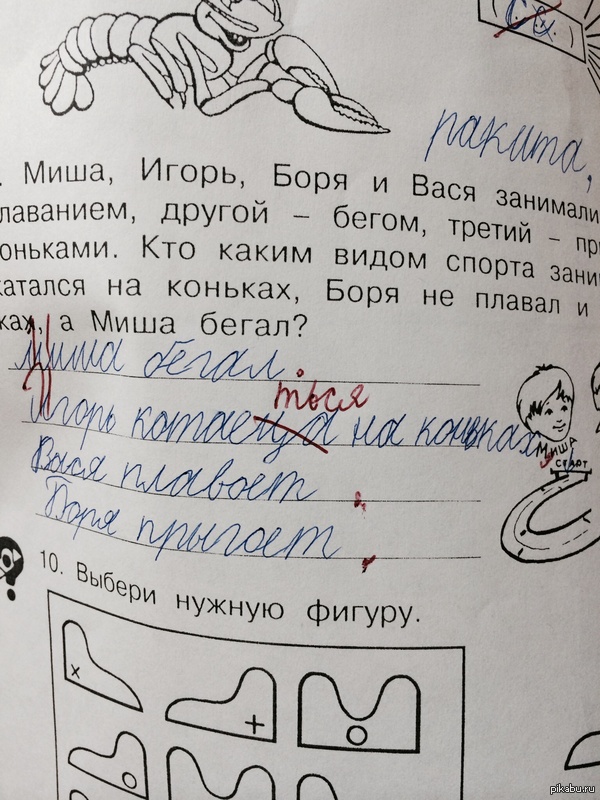 са
ракита,
. Миша, Игорь, Боря и Вася занимали
лаванием, другой – бегом, третий – пр
оньками. Кто каким видом спорта зани
катался на коньках, Боря не плавал и
ках, а Миша бегал?
Миша бегал.
ться
Игорь катаеца на коньках,
Вася плавает,
Боря прыгает,
МИША
СТАРТ
10. Выбери нужную фигуру.
pikabu.ru